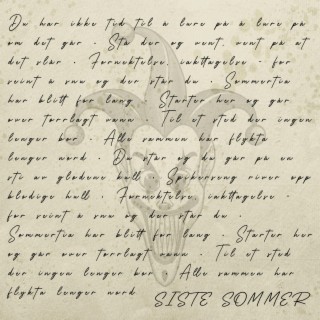 Du har ikke tid til å lure på å lure på
om det går · Stå der og vent, vent på at
det slår · Fornektelse, iakttagelse · for
seint å snu og der står du · Sommertia
har blitt for lang · Starter her og går
over torrlagt vann · Til et sted der ingen
lenger bor · Alle sammen har flykta
lenger nord · Du står og du går på en
sti av glødene kull · Spikerseng river opp
blodige hull · Fornektelse, iakttagelse ·
for seint å snu og der står du ·
Sommertia har blitt for lang · Starter her
og går over torrlagt vann · Til et sted
der ingen lenger bor · Alle sammen har
flykta lenger nord
SISTE SOMMER